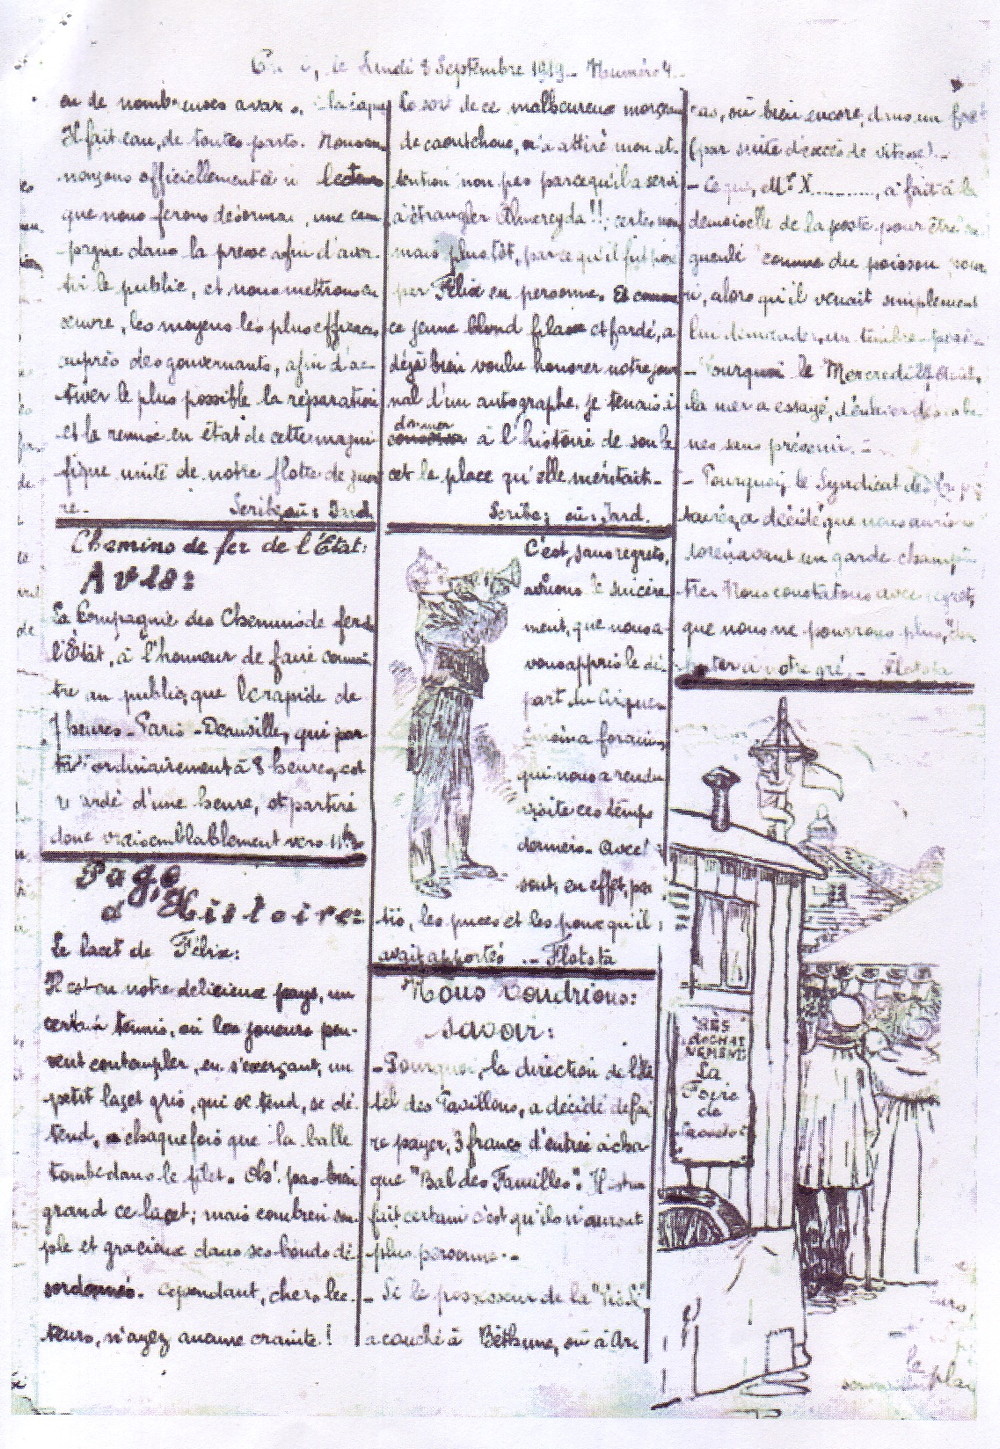 le Lundi 8 Septembre 1919 _ Numéro 4 _
en de nombreuses avar
Il fait eau, de toutes parts. Nous an
nonçons officiellement à lecteurs
que nous ferons désorma une cam
pagne dans la presse afin d'aver
tir le public, et nous mettrons en
œuvre, les moyens les plus efficaces
auprès des gouvernants, afin d'ac
tiver le plus possible la réparation
et la remise en état de cette magni
fique unité de notre flotte de guer
re _
Scribe, où: Jard
Chemins de fer de l'Etat:
Avis:
La Compagnie des Chemins de fer de
l'Etat, à l'honneur de faire connaî
tre au public, que le rapide de
7 heures _ Paris _ Deauville, qui par
tait ordinairement à 8 heures, est
retardé d'une heure, et partira
donc vraisemblablement vers 11h
Page
d'Histoire:
Le lacet de Félix:
Il est en notre délicieux pays, un
certain tennis, où les joueurs peu-
vent contempler, en s'exerçant, un
petit lacet gris, qui se tend, se dé-
tend, à chaque fois que la balle
tombe dans le filet. Oh! pas bien
grand ce lacet; mais combien sou
ple et gracieux dans ses bonds dé
sordonnés. cependant, chers lec-
teurs, n'ayez aucune crainte!
Le sort de ce malheureux morceau
de caoutchouc, n'a attiré mon at-
tention non pas parcequ'il a servi
à étrangler Almereyda!! certes non
mais plus tôt, parce qu'il fut posé
par Félix en personne. Et comme
ce jeune blond filasse et fardé, a
déjà bien voulu honorer notre jour
nal d'un autographe, je tenais à
donner à l'histoire de son la
cet la place qu'elle méritait _
Scribe; où: Jard.
C'est, sans regrets,
avouons le sincère
ment, que nous a-
vons appris le dé-
part du Cirque-
cinéma forain,
qui nous a rendu
visite ces temps
derniers _ Avec
sont, en effet, par
tis, les puces et les poux qu'il
avait apportés ._ Flotota
Nous voudrions:
savoir:
_ Pourquoi, la direction de l'Hô
tel des Pavillons, a décidé de fai
re payer, 3 francs d'entrée à cha-
que "Bal des Familles". Il est un
fait certain c'est qu'ils n'auront
plus personne. _
_ Si le possesseur de la
a couché à Béthune, où à Ar-
ras, où bien encore, dans un
(par suite d'excès de vitesse) _
_ Ce que, Mr X..........., a fait à la
demoiselle de la poste pour être en
gueulé comme du poisson pour
ri, alors qu'il venait simplement
lui demander, un timbre-poste _
_ Pourquoi le Mercredi Août,
la mer a essayé, d'enlever des caba
nes sans prévenir. _
_ Pourquoi, le Syndicat des
a décidé, que nous aurions
dorénavant un garde champê-
tre. Nous constatons avec regret,
que nous ne pourrons plus,
à notre gré _ Flotota
DÉS
ACHAI
NEMENT
La
Foire
de